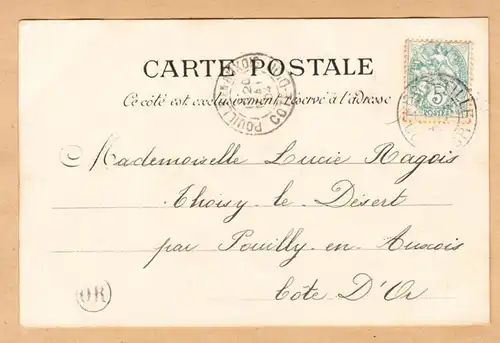 CARTE POSTALE
Ce côté est exclusivement réservé à l'adresse
Mademoiselle Lucie Ragois
Thoisy-le-Désert
par Pouilly-en-Auxois
Côte D'Or
OR